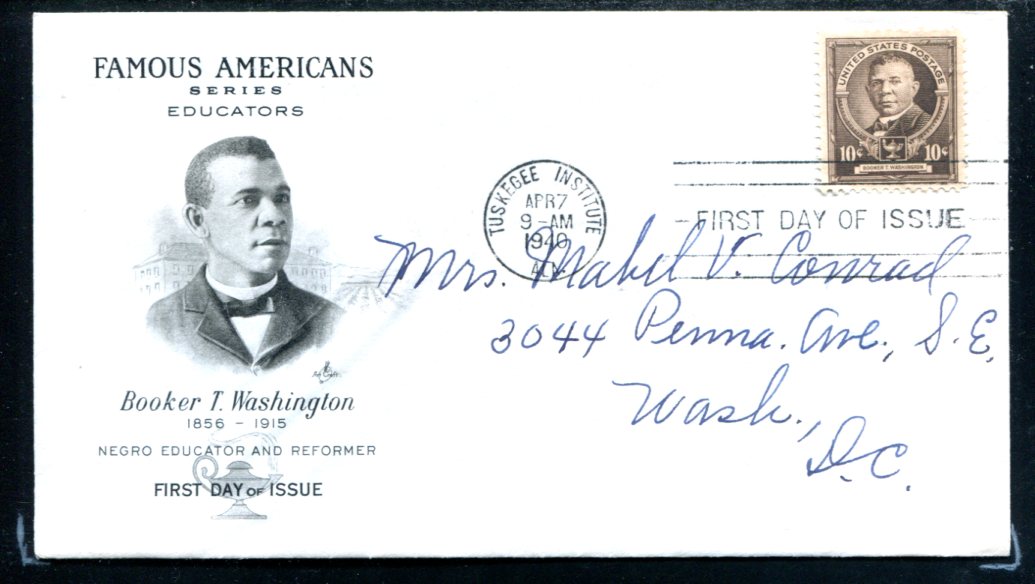 FAMOUS AMERICANS
SERIES
EDUCATORS
Booker T. Washington
1856 - 1915
NEGRO EDUCATOR AND REFORMER
FIRST DAY OF ISSUE
UNITED STATES POSTAGE
10¢ 10¢
BOOKER T. WASHINGTON
TUSKEGEE INSTITUTE
APR 7
9-AM
1940
ALA.
FIRST DAY OF ISSUE
Mrs. Mabel V. Conrad
3044 Penna. Ave., S.E.
Wash.,
D.C.